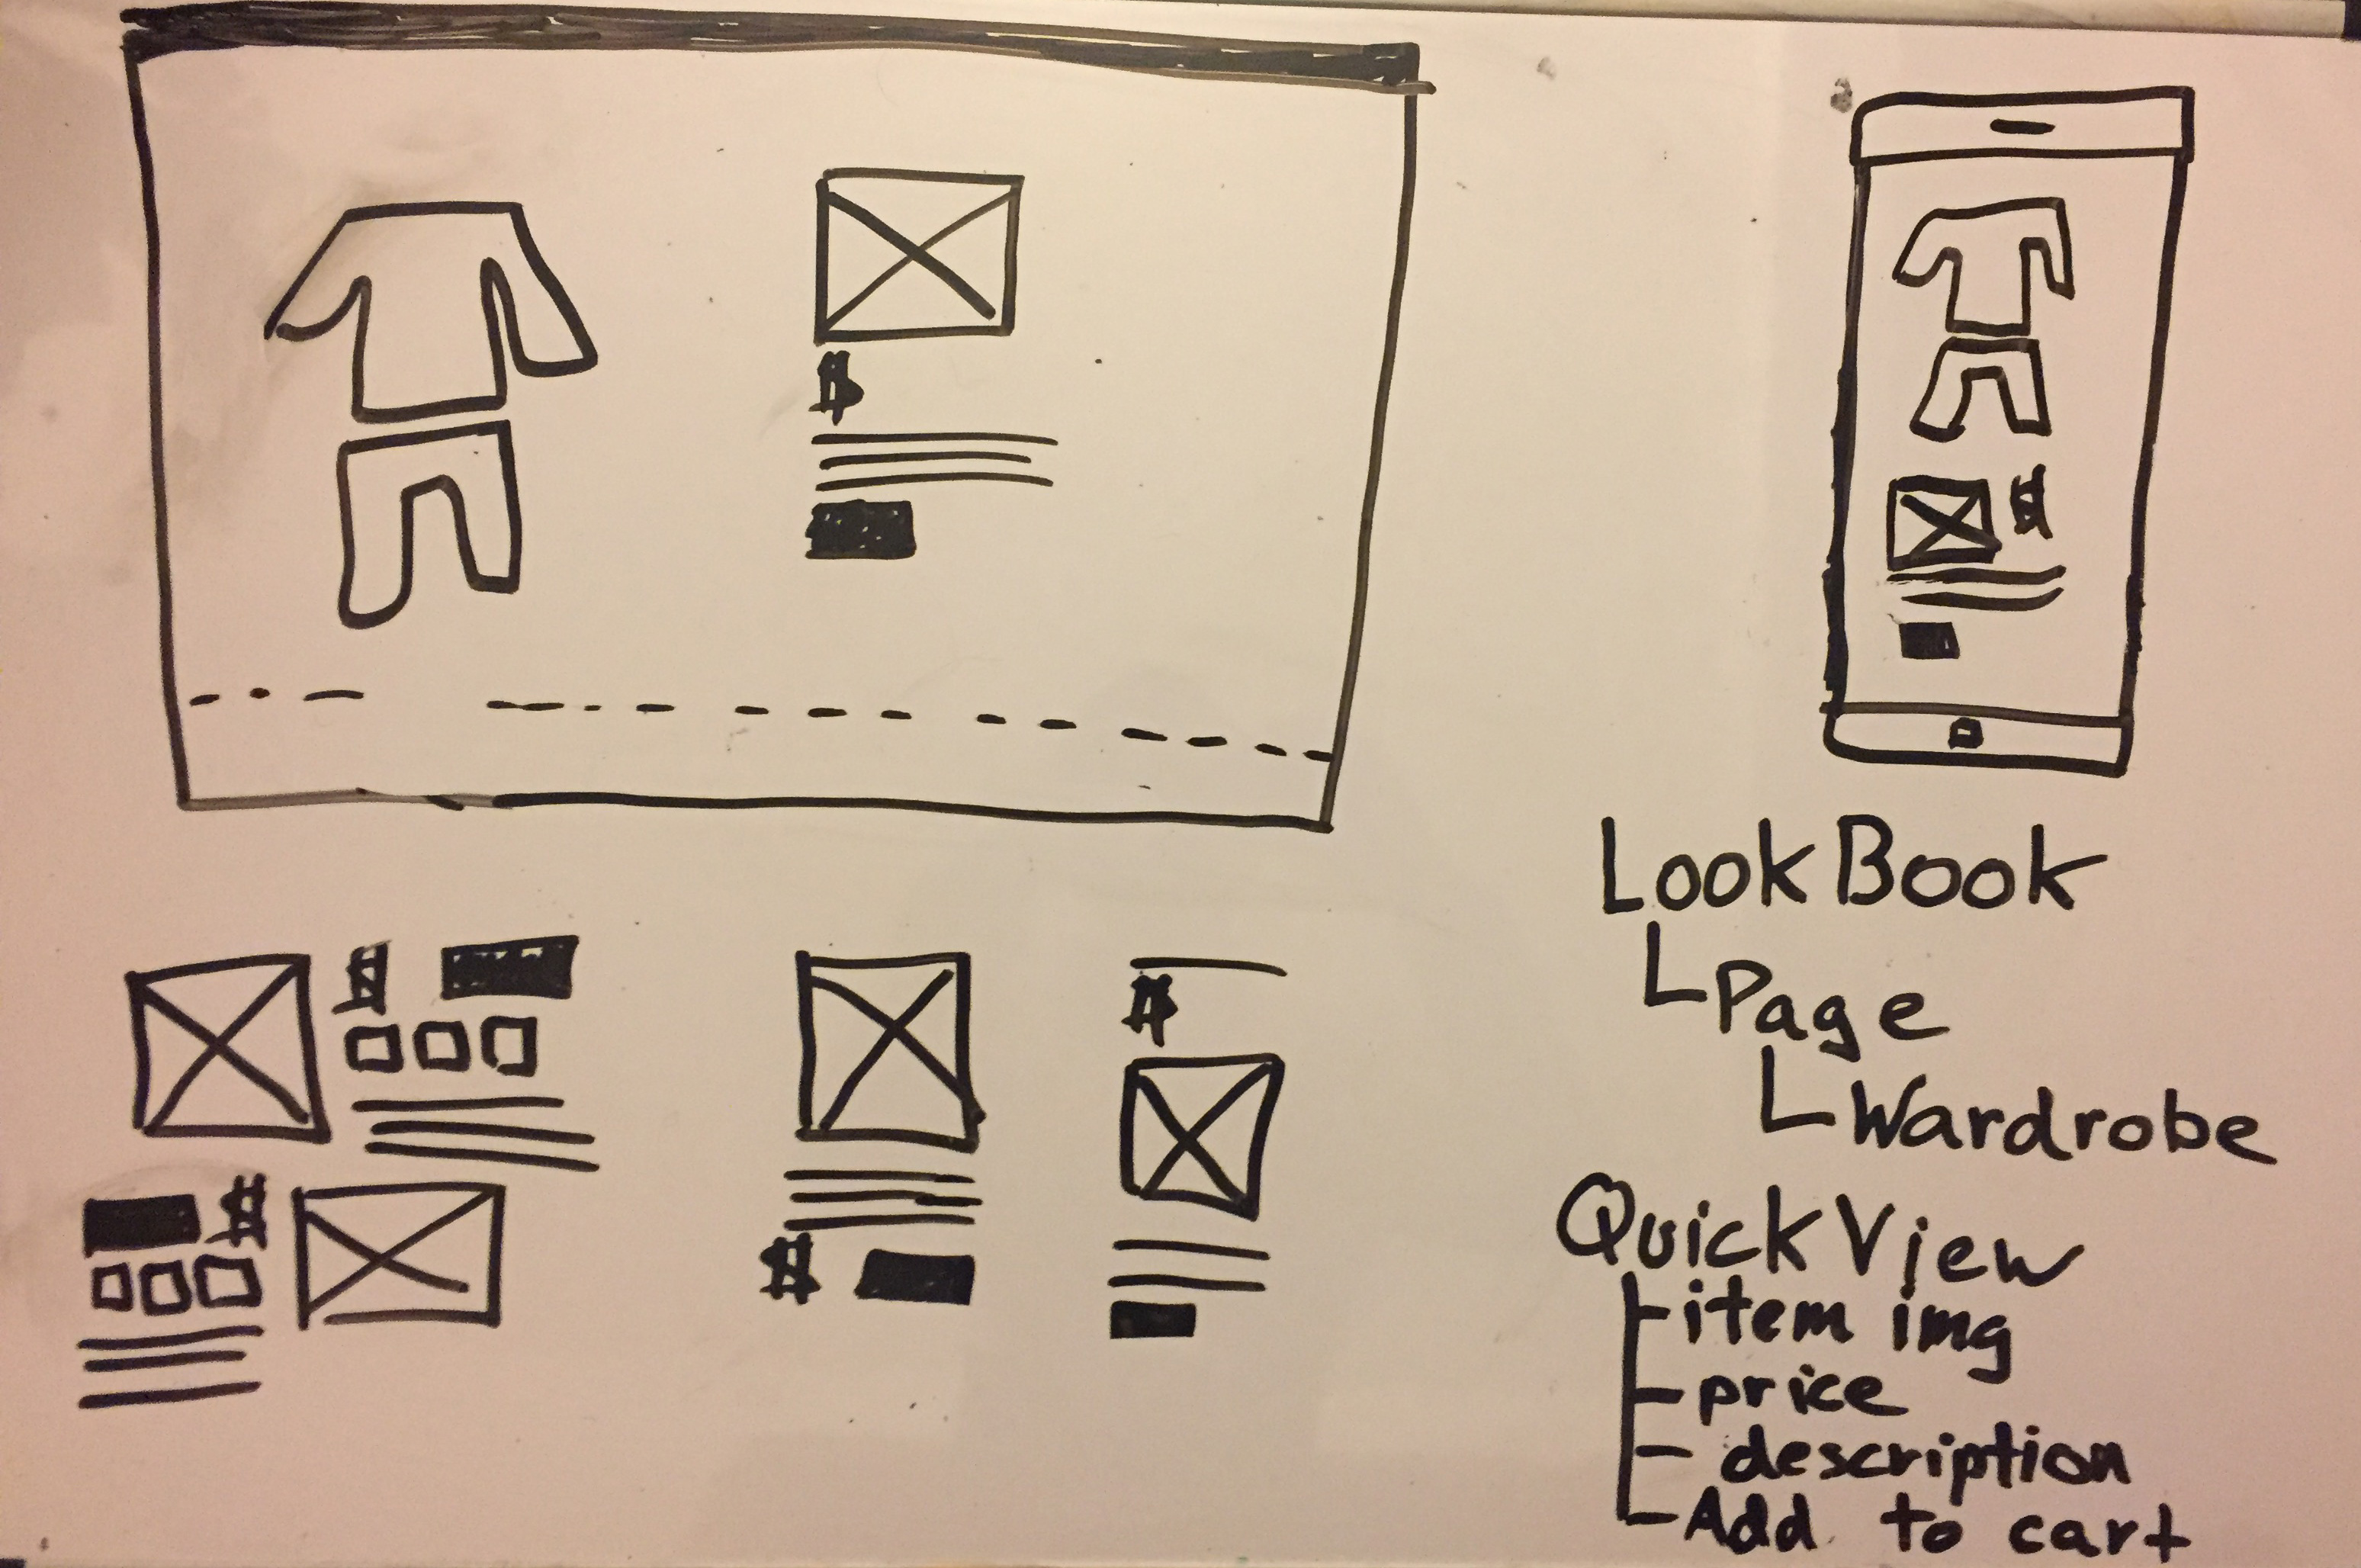 $
$
LookBook
Page
Wardrobe
$
$
$
$
QuickView
item img
price
description
Add to cart